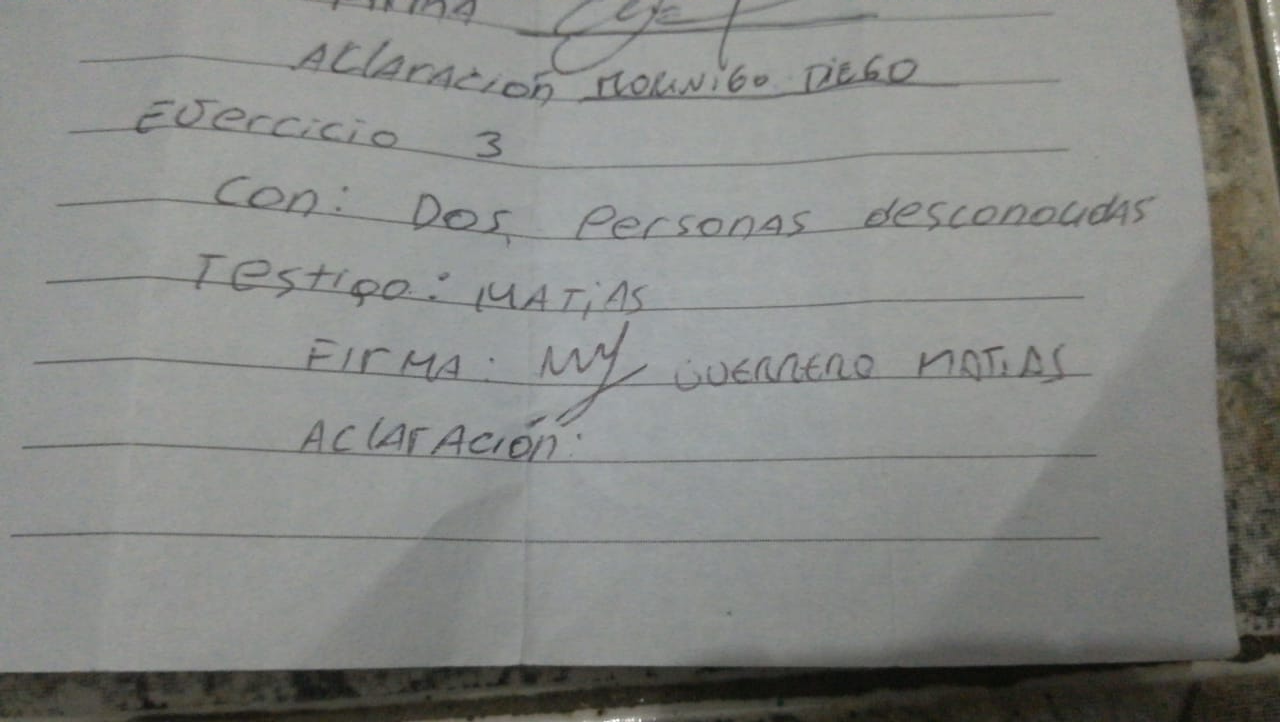 FIRMA
AClArAción MORINIGO DIEGO
EJercicio 3
Con: DOS Personas desconocidas
Testigo: MATiAS
FIrMA: GUERRERO MATiAS
AClarAción: